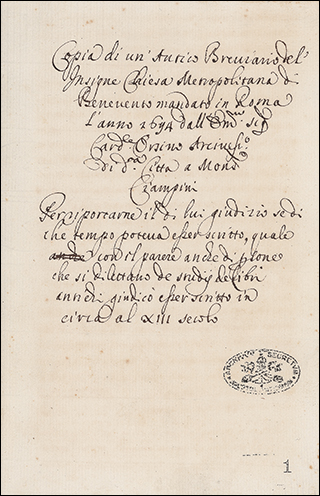 Copia di un' Antico Breviario del'
Insigne Chiesa Metropolitana di
Benevento mandato in Roma
l'anno 1694 dall' Em.^mo Sig.^r
Card.^le Orsino Arcives.^o
di d.^a Citta a Mons.^r
Ciampini
Per riportarne il di lui giudizio se di
che tempo poteva esser scritto, quale
con il parere anche di
che si dilettano de studij de libri
antichi giudicò esser scritto in
circa al XIII secolo
ARCHIVIO SEGRETO
1